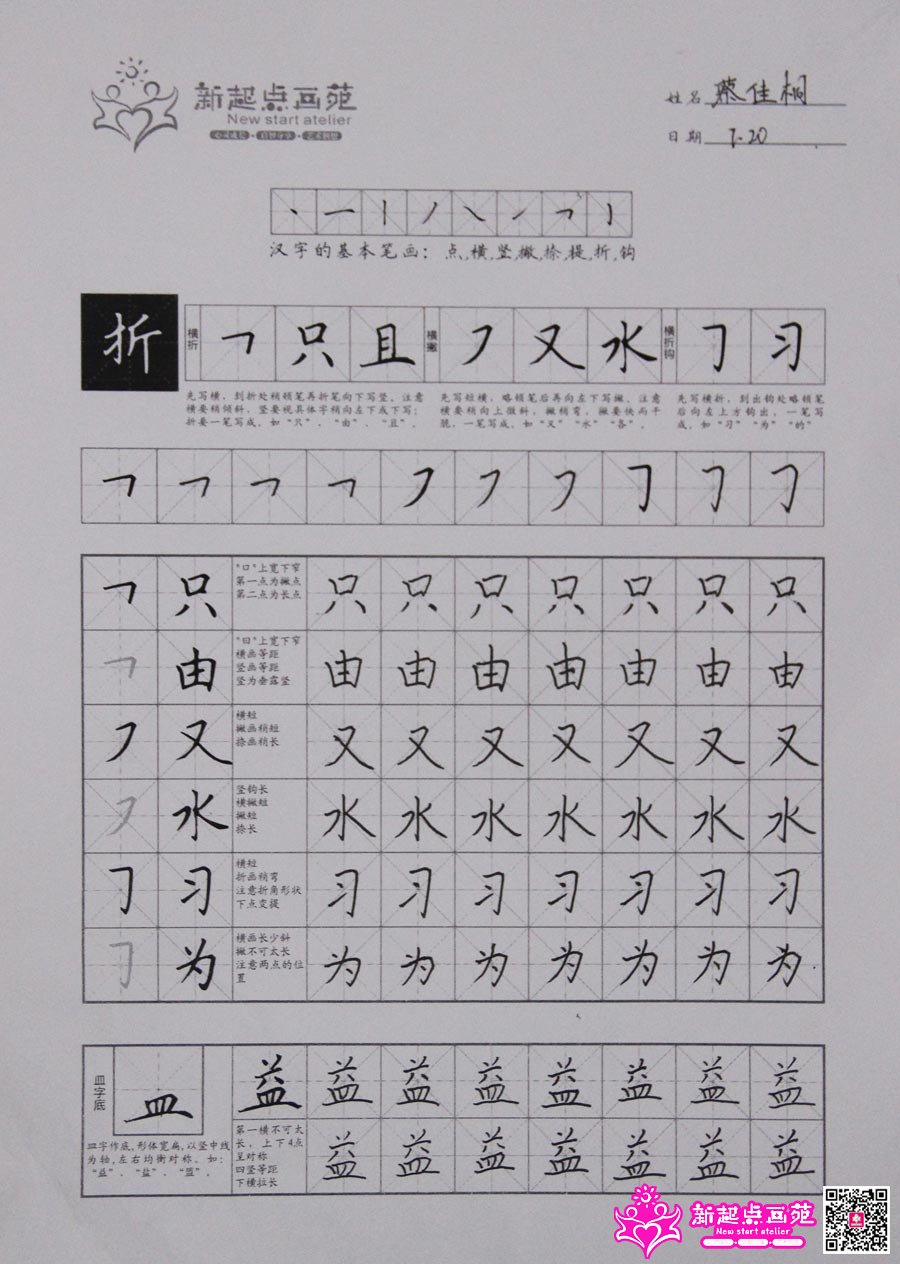 新起点画苑
New start atelier
姓名 蔡佳桐
日期 7.20
丶 一 丨 丿 ㇏ ㇀ ㇕ 亅
汉字的基本笔画：点,横,竖,撇,捺,提,折,钩
折 横折 ㇕ 只 且 横撇 ㇇ 又 水 横折钩 ㇆ 习
先写横，到折处稍顿笔再折笔向下写竖。注意
横要稍倾斜，竖要视具体字稍向左下或下写；
折要一笔写成。如“只”、“由”、“且”。
先写短横，略顿笔后再向左下写撇。注意
横要稍向上微斜，撇稍弯，撇要快而干
脆，一笔写成。如“又”“水”“各”。
先写横折，到出钩处略顿笔
后向左上方钩出，一笔写
成。如“习”“为”“的”
㇕ ㇕ ㇕ ㇕ ㇇ ㇇ ㇇ ㇆ ㇆ ㇆
㇕ 只 “口”上宽下窄 只 只 只 只 只 只 只
第一点为撇点
第二点为长点
㇕ 由 “曰”上宽下窄 由 由 由 由 由 由 由
横画等距
竖画等距
竖为垂露竖
㇇ 又 横短 又 又 又 又 又 又 又
撇画稍短
捺画稍长
㇇ 水 竖钩长 水 水 水 水 水 水 水
横撇短
撇短
捺长
㇆ 习 横短 习 习 习 习 习 习 习
折画稍弯
注意折角形状
下点变提
㇆ 为 横画长少斜 为 为 为 为 为 为 为
撇不可太长
注意两点的位
置
皿字底 皿 益 益 益 益 益 益 益 益
皿字作底,形体宽扁,以竖中线
为轴,左右均衡对称。如：
“益”、“盐”、“盟”。
第一横不可太 益 益 益 益 益 益 益
长，上下4点
呈对称
四竖等距
下横拉长
新起点画苑
New start atelier